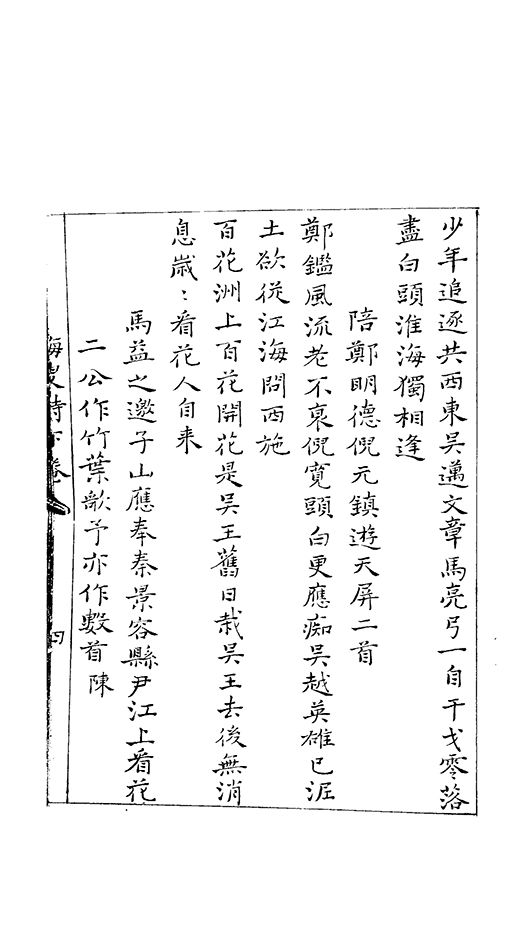 少年追逐共西東吳邁文章馬亮弓一自干戈零落
盡白頭淮海獨相逢
陪鄭明德倪元鎮遊天屏二首
鄭鑑風流老不衰倪寬頭白更應痴吳越英雄已涯
土欲從江海問西施
百花洲上百花開花是吳王舊日栽吳王去後無消
息歲〻看花人自来
馬益之邀子山應奉秦景容縣尹江上看花
二公作竹葉歌予亦作數首陳
海叟詩下卷